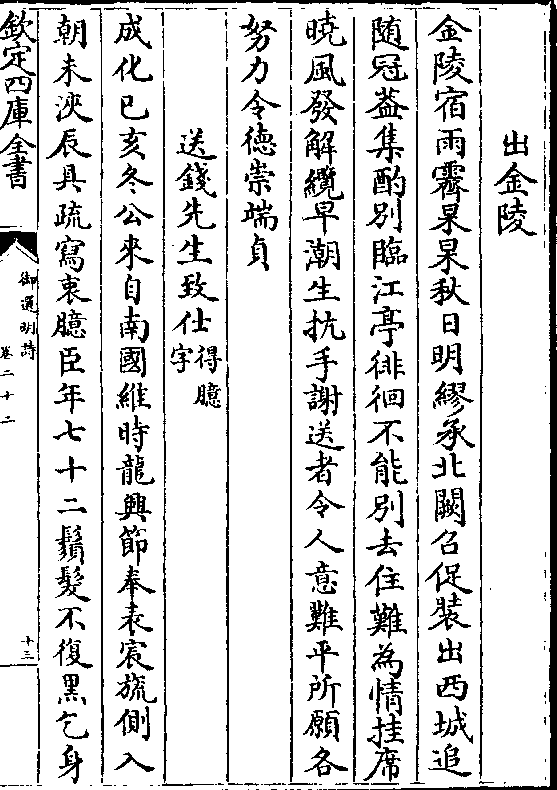 出金陵
金陵宿雨霽杲杲秋日明繆承北闕召促裝出西城追
随冠葢集酌别臨江亭徘徊不能别去住難為情挂席
曉風發解纜早潮生抗手謝送者令人意難平所願各
努力令徳崇端貞
送錢先生致仕得臆字
成化已亥冬公來自南國維時龍興節奉表宸旒側入
朝未浹辰具疏寫衷臆臣年七十二鬚髮不復黒乞身
欽定四庫全書
御選明詩
卷二十二
十三